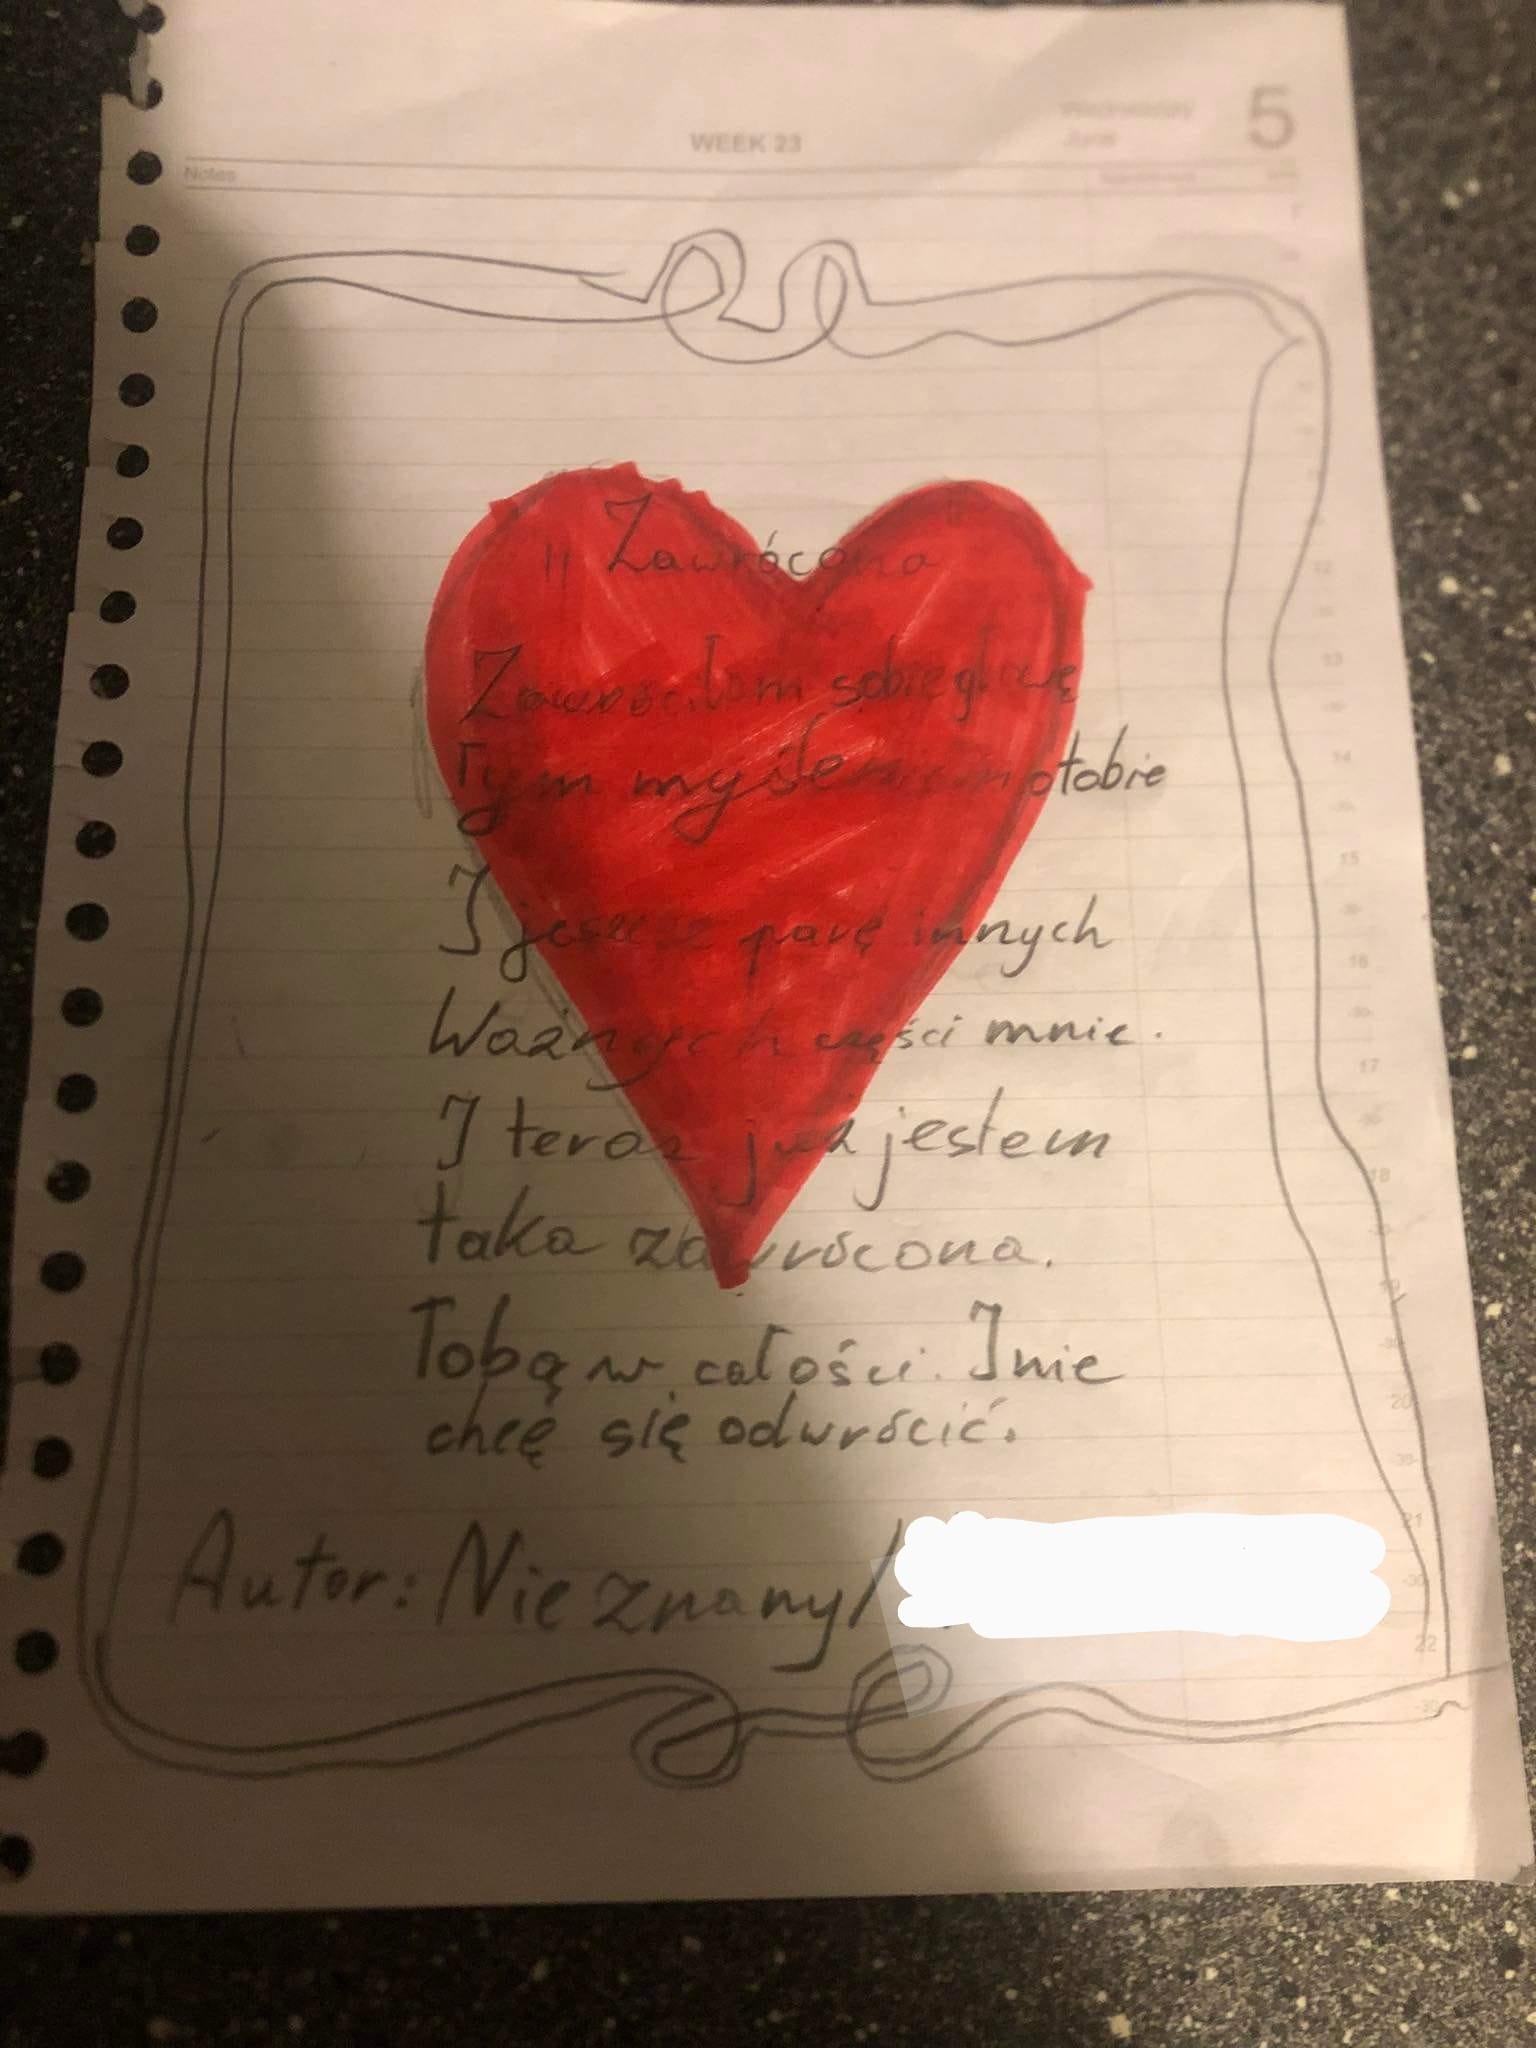 WEEK 23
Wednesday
June
5
Notes
" Zawrócona
Zawróciłam sobie głowę
Tym myśleniem o tobie
I jeszcze parę innych
Ważnych części mnie.
I teraz już jestem
taka zawrócona.
Tobą w całości. I nie
chcę się odwrócić.
Autor: Nieznany/
12
13
14
15
16
17
18
19
20
21
22